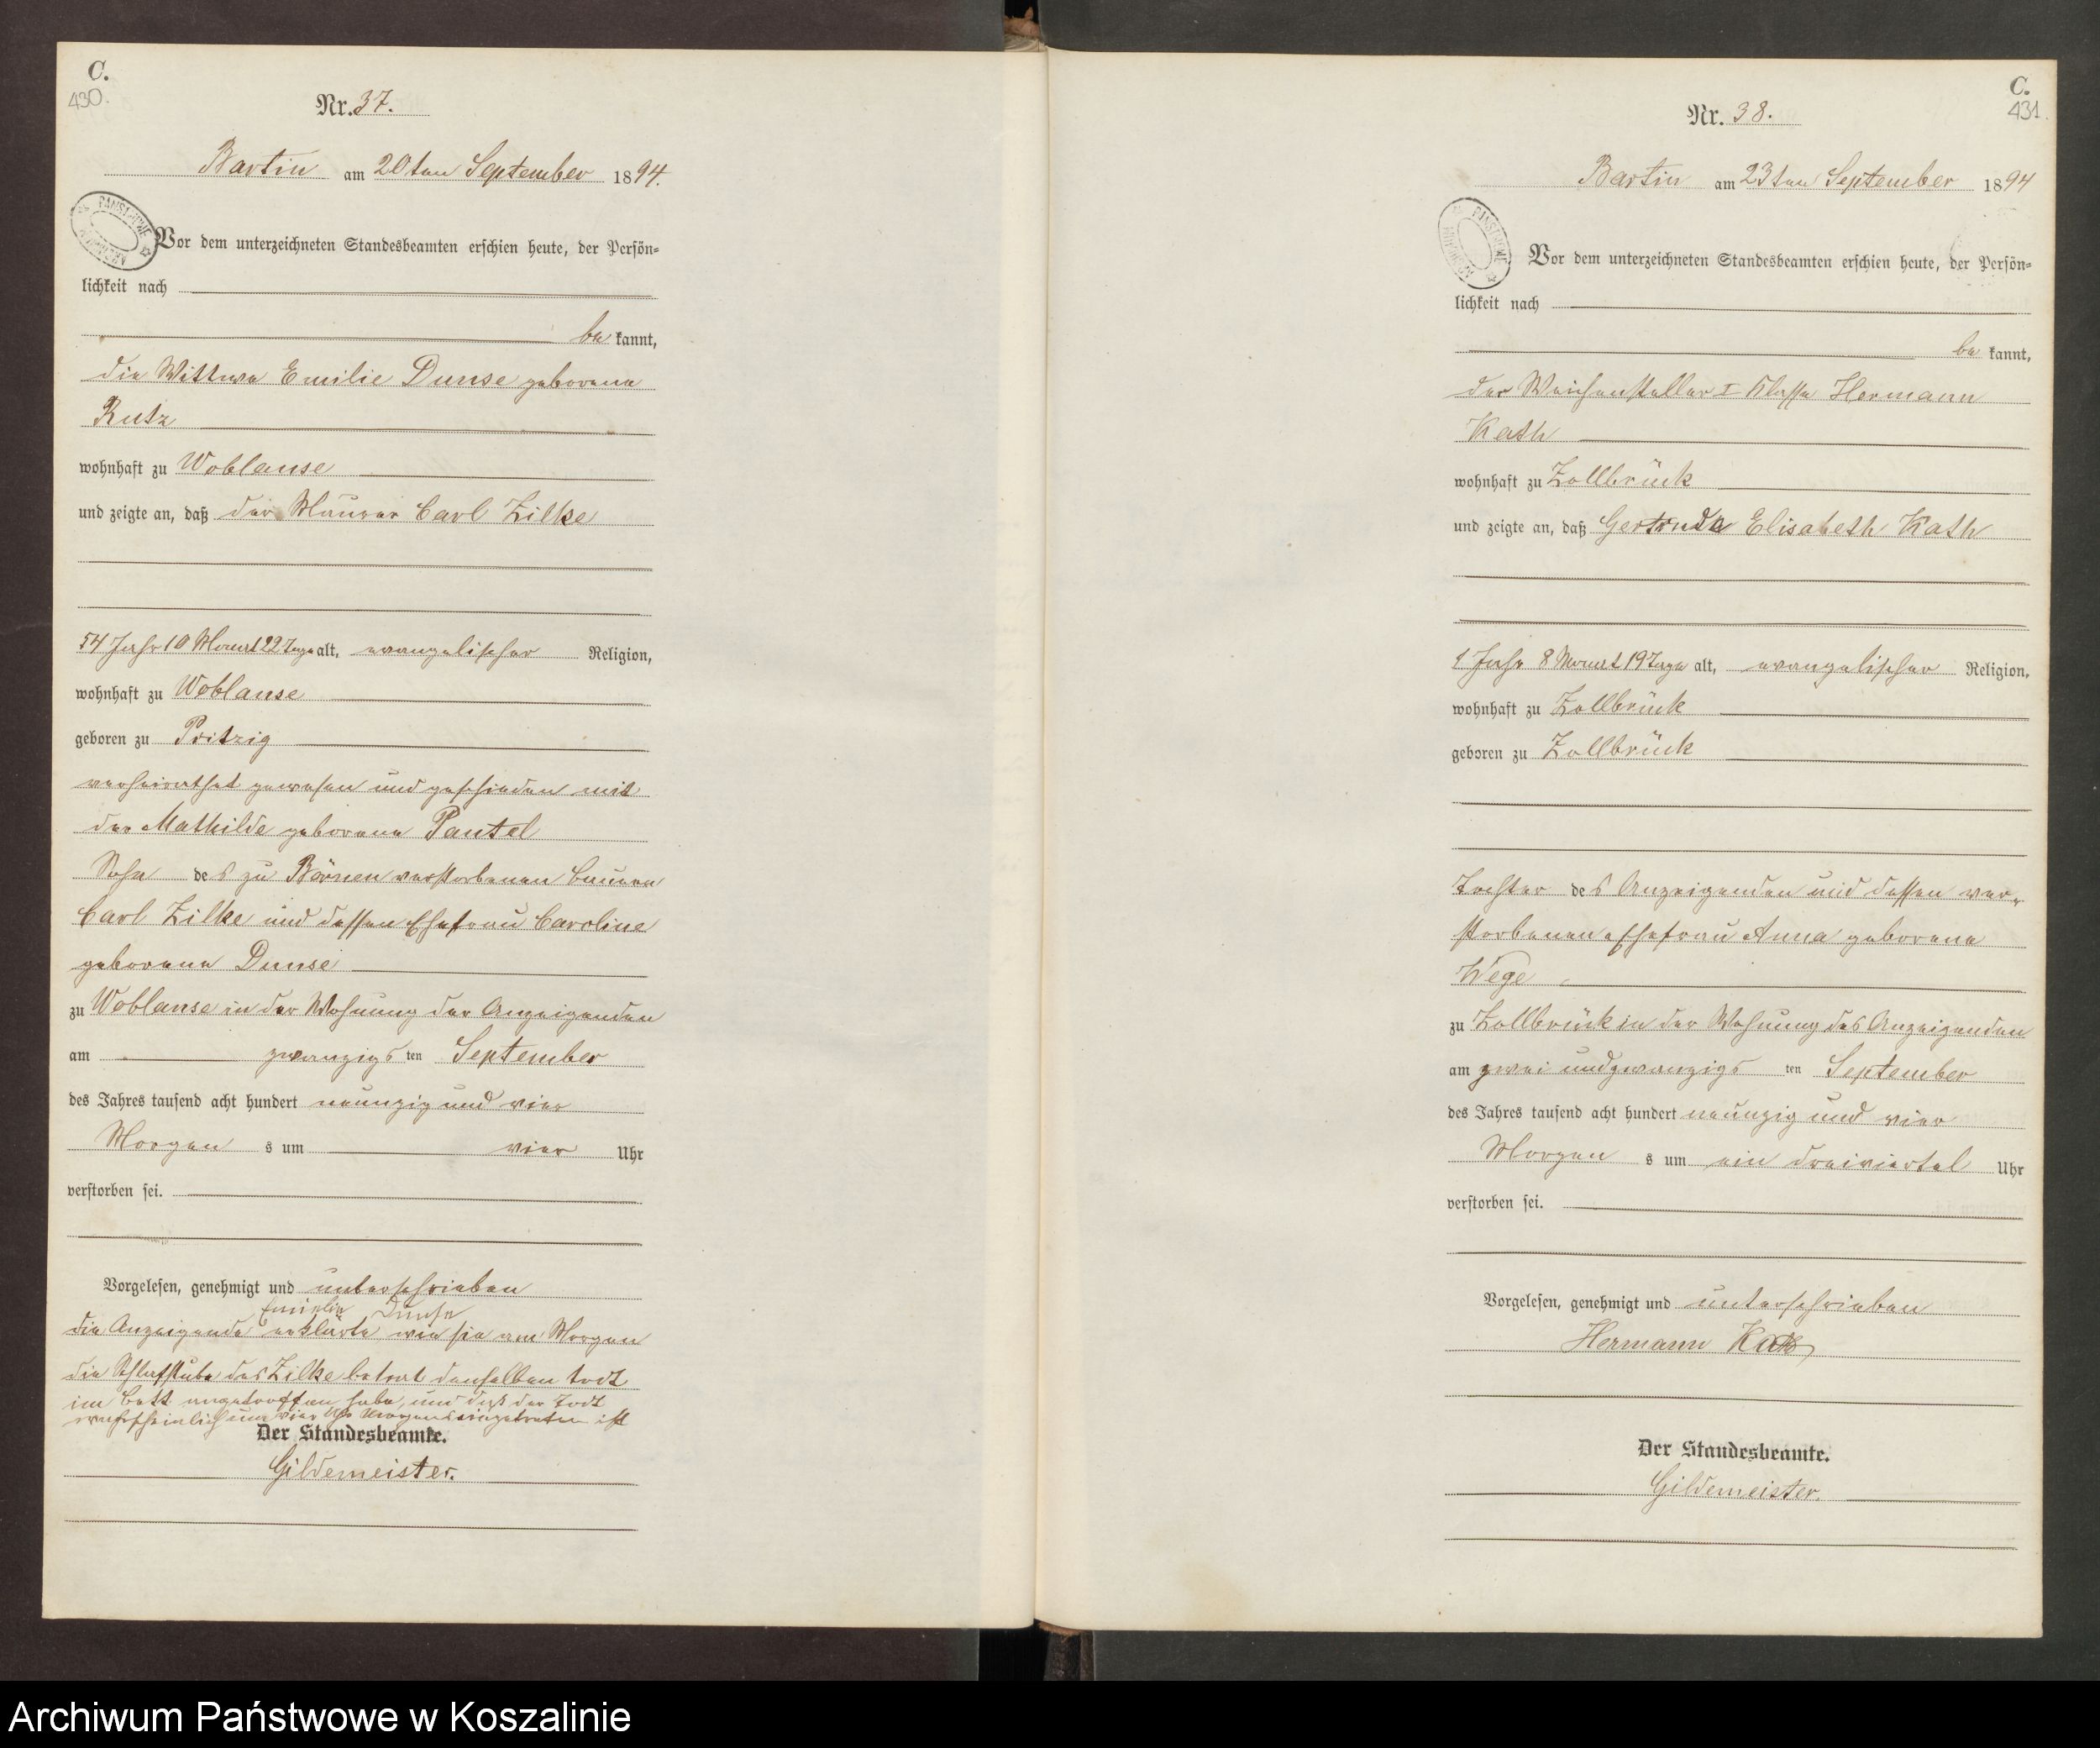 C.
430.
Nr. 37.
Bartin am 20ten September 1894.
Vor dem unterzeichneten Standesbeamten erschien heute, der Persön-
lichkeit nach
be kannt,
die Wittwe Emilie Dunse geborene
Rutz
wohnhaft zu Woblanse
und zeigte an, daß der Maurer Carl Zilke
54 Jahr 10 Monat 22 Tage alt, evangelischer Religion,
wohnhaft zu Woblanse
geboren zu Pritzig
verheirathet gewesen und geschieden mit
der Mathilde geborene Pantel
Sohn des zu Börnen verstorbenen Bauern
Carl Zilke und dessen Ehefrau Caroline
geborene Dunse
zu Woblanse in der Wohnung der Anzeigenden
am zwanzigs ten September
des Jahres tausend acht hundert neunzig und vier
Morgen s um vier Uhr
verstorben sei.
Vorgelesen, genehmigt und unterschrieben
Emielie Dunse
die Anzeigende erklärte, wie sie am Morgen
die Schlafstube des Zilke betrat denselben todt
im Bett angetroffen habe, und daß der Todt
wahrscheinlich um vier Uhr Morgens eingetreten ist
Der Standesbeamte.
Gildemeister.
C.
431.
Nr. 38.
Bartin am 23ten September 1894
Vor dem unterzeichneten Standesbeamten erschien heute, der Persön-
lichkeit nach
be kannt,
der Weichensteller I Klasse Hermann
Kath
wohnhaft zu Zollbrück
und zeigte an, daß Gertrude Elisabeth Kath
1 Jahr 8 Monat 19 Tage alt, evangelischer Religion,
wohnhaft zu Zollbrück
geboren zu Zollbrück
Tochter des Anzeigenden und dessen ver-
storbenen Ehefrau Anna geborene
Wege
zu Zollbrück in der Wohnung des Anzeigenden
am zwei und zwanzigs ten September
des Jahres tausend acht hundert neunzig und vier
Morgen s um ein dreiviertel Uhr
verstorben sei.
Vorgelesen, genehmigt und unterschrieben
Hermann Kath
Der Standesbeamte.
Gildemeister.
Archiwum Państwowe w Koszalinie